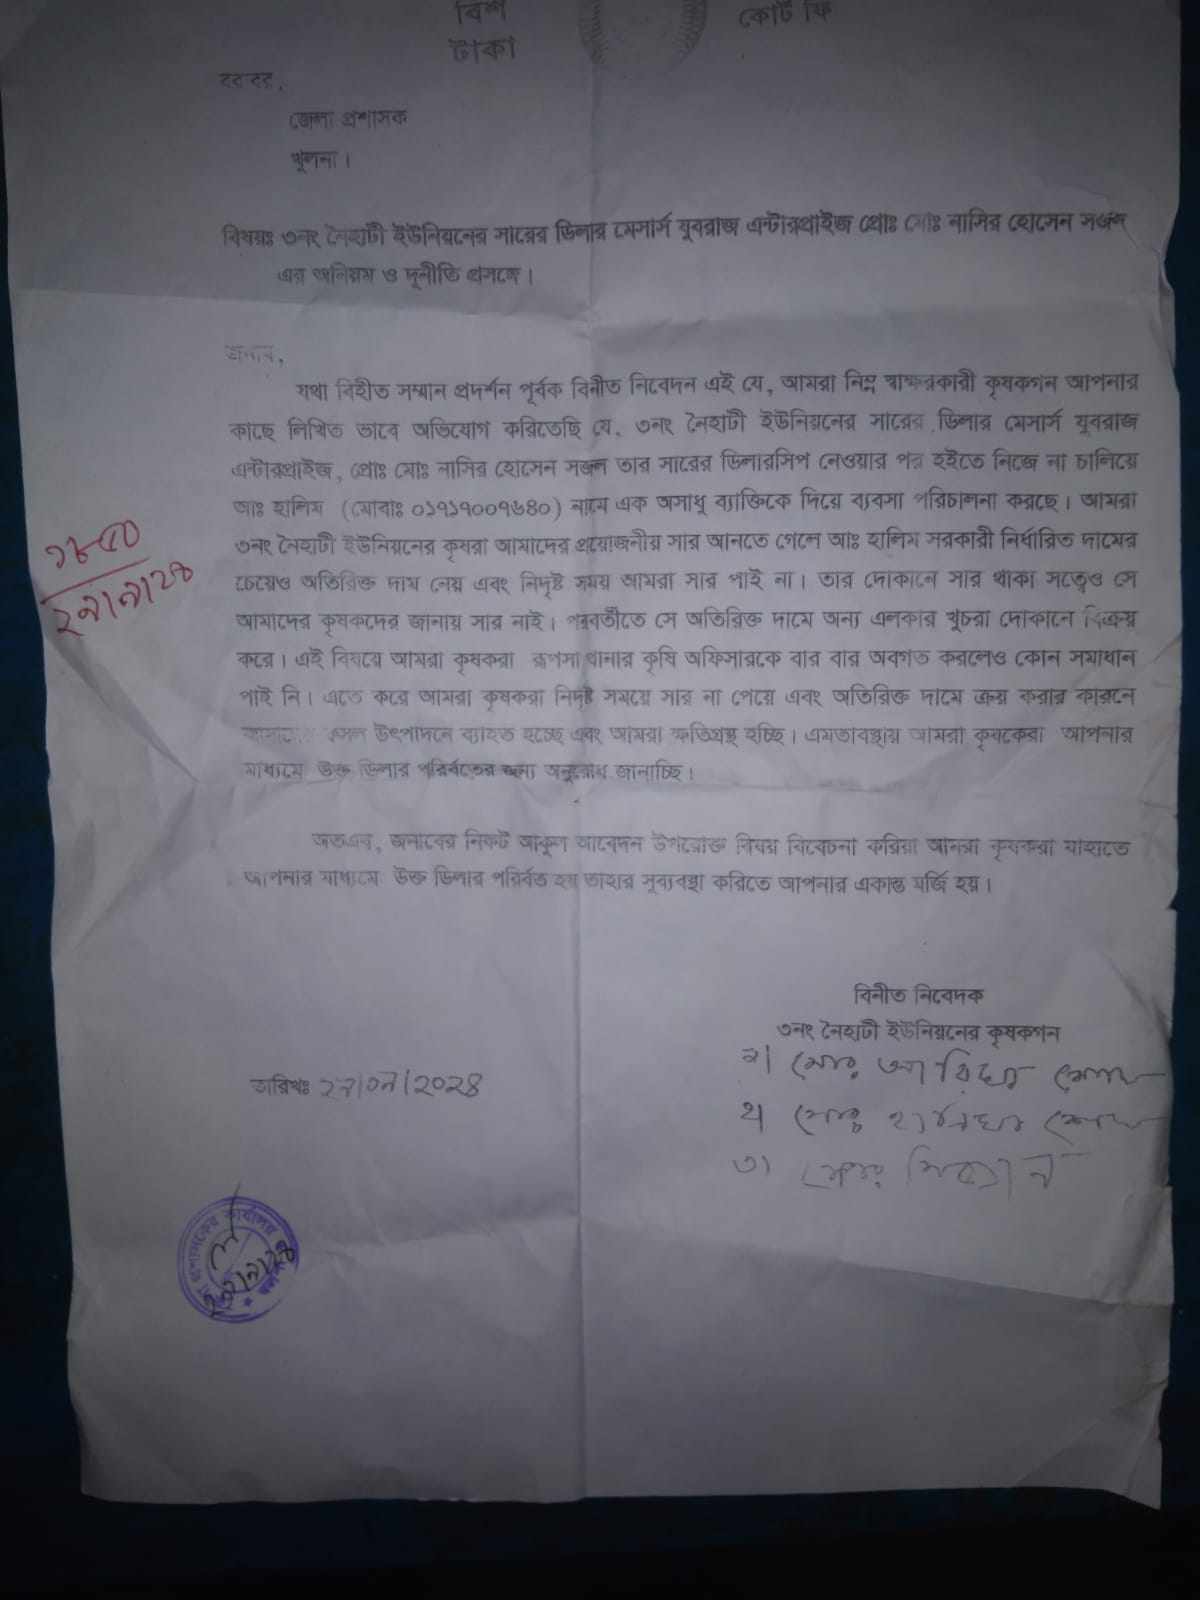 বিশ
টাকা
কোর্ট ফি
বরাবর,
জেলা প্রশাসক
খুলনা।
বিষয়ঃ ৩নং নৈহাটী ইউনিয়নের সারের ডিলার মেসার্স যুবরাজ এন্টারপ্রাইজ প্রোঃ মোঃ নাসির হোসেন সজল
এর অনিয়ম ও দূর্নীতি প্রসঙ্গে।
জনাব,
যথা বিহীত সম্মান প্রদর্শন পূর্বক বিনীত নিবেদন এই যে, আমরা নিম্ন স্বাক্ষরকারী কৃষকগন আপনার
কাছে লিখিত ভাবে অভিযোগ করিতেছি যে, ৩নং নৈহাটী ইউনিয়নের সারের ডিলার মেসার্স যুবরাজ
এন্টারপ্রাইজ, প্রোঃ মোঃ নাসির হোসেন সজল তার সারের ডিলারসিপ নেওয়ার পর হইতে নিজে না চালিয়ে
আঃ হালিম (মোবাঃ ০১৭১৭০০৭৬৪০) নামে এক অসাধু ব্যাক্তিকে দিয়ে ব্যবসা পরিচালনা করছে। আমরা
৩নং নৈহাটী ইউনিয়নের কৃষরা আমাদের প্রয়োজনীয় সার আনতে গেলে আঃ হালিম সরকারী নির্ধারিত দামের
চেয়েও অতিরিক্ত দাম নেয় এবং নিদৃষ্ট সময় আমরা সার পাই না। তার দোকানে সার থাকা সত্বেও সে
আমাদের কৃষকদের জানায় সার নাই। পরবর্তীতে সে অতিরিক্ত দামে অন্য এলকার খুচরা দোকানে বিক্রয়
করে। এই বিষয়ে আমরা কৃষকরা রূপসা থানার কৃষি অফিসারকে বার বার অবগত করলেও কোন সমাধান
পাই নি। এতে করে আমরা কৃষকরা নিদৃষ্ট সময়ে সার না পেয়ে এবং অতিরিক্ত দামে ক্রয় করার কারনে
ফসল উৎপাদনে ব্যাহত হচ্ছে এবং আমরা ক্ষতিগ্রস্থ হচ্ছি। এমতাবস্থায় আমরা কৃষকেরা আপনার
মাধ্যমে উক্ত ডিলার পরির্বতের জন্য অনুরোধ জানাচ্ছি।
অতএব, জনাবের নিকট আকুল আবেদন উপরোক্ত বিষয় বিবেচনা করিয়া আমরা কৃষকরা যাহাতে
আপনার মাধ্যমে উক্ত ডিলার পরির্বত হয় তাহার সুব্যবস্থা করিতে আপনার একান্ত মর্জি হয়।
বিনীত নিবেদক
৩নং নৈহাটী ইউনিয়নের কৃষকগন
১। মোঃ শেখ
২। মোঃ শেখ
৩। মোঃ মিজান
তারিখঃ ২৯/০৯/২০২৪
২৯/৯/২৪